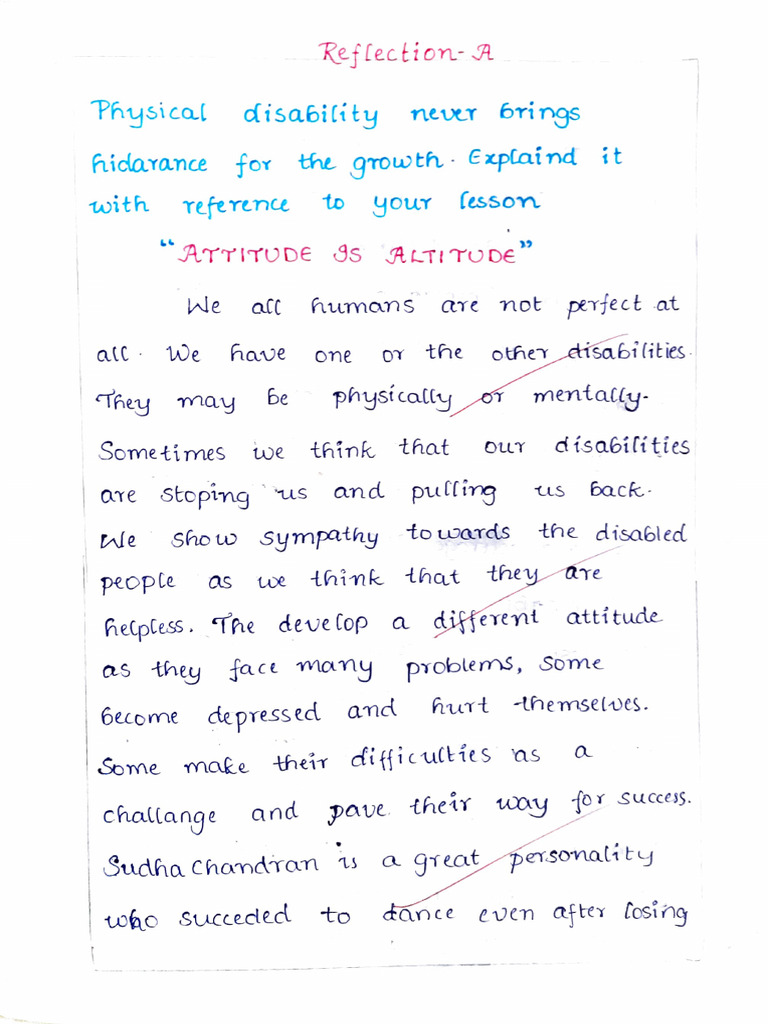 Reflection-A
Physical disability never brings
hidarance for the growth. Explaind it
with reference to your lesson
"ATTITUDE IS ALTITUDE"
We all humans are not perfect at
all. We have one or the other disabilities.
They may be physically or mentally.
Sometimes we think that our disabilities
are stoping us and pulling us back.
We show sympathy towards the disabled
people as we think that they are
helpless. The develop a different attitude
as they face many problems, some
become depressed and hurt themselves.
Some make their difficulties as a
challange and pave their way for success.
Sudha Chandran is a great personality
who succeded to dance even after losing